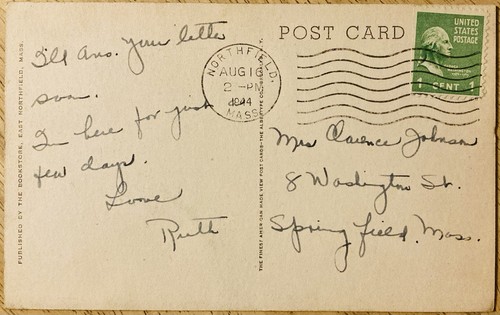 POST CARD
UNITED
STATES
POSTAGE
1 CENT 1
NORTHFIELD,
AUG 16
2 - PM
1944
MASS.
I'll ans. your letter
soon.
Im here for just
few days.
Love
Ruth
Mrs Clarence Johnson
8 Washington St.
Springfield, Mass.
PUBLISHED BY THE BOOKSTORE, EAST NORTHFIELD, MASS.
THE FINEST AMERICAN MADE VIEW POST CARDS—THE ALBERTYPE CO.,